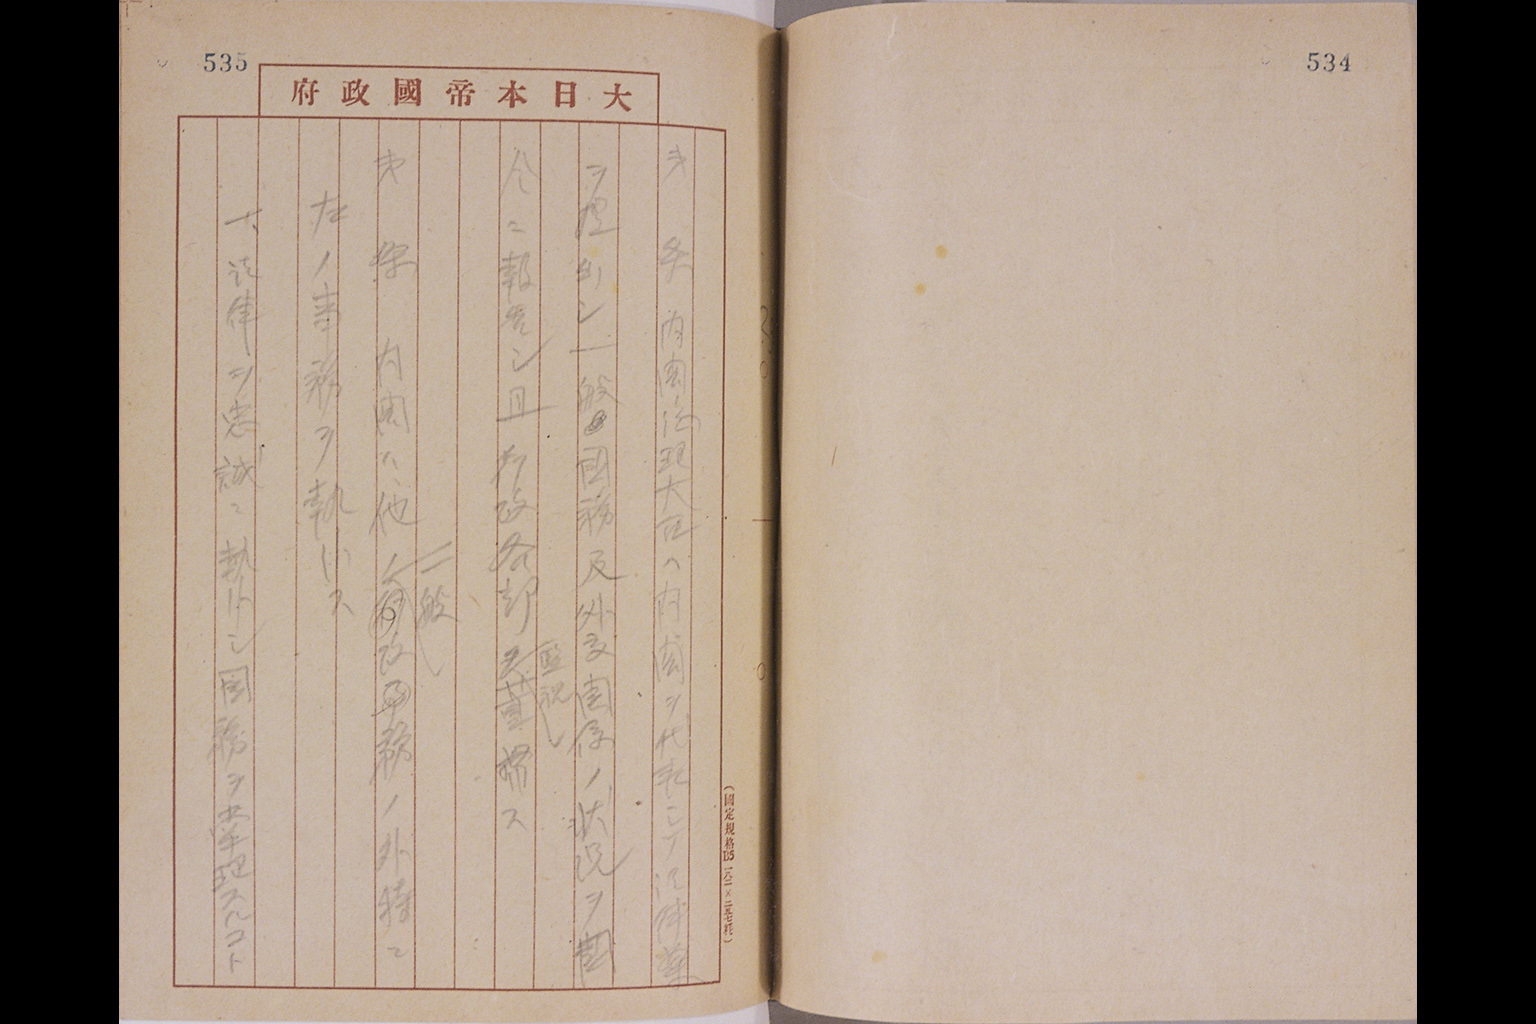 534
535
大日本帝國政府
才 条 内閣総理大臣ハ内閣ヲ代表シテ法律案
ヲ提出シ一般国務及外交関係ノ状況ヲ国
会ニ報告シ且行政各部ヲ
監視
ス
才 条 内閣ハ他ノ
一般
行政事務ノ外特ニ
左ノ事務ヲ執行ス
一、法律ヲ忠誠ニ執行シ国務ヲ掌理スルコト
(國定規格B5 一八二×二五七粍)